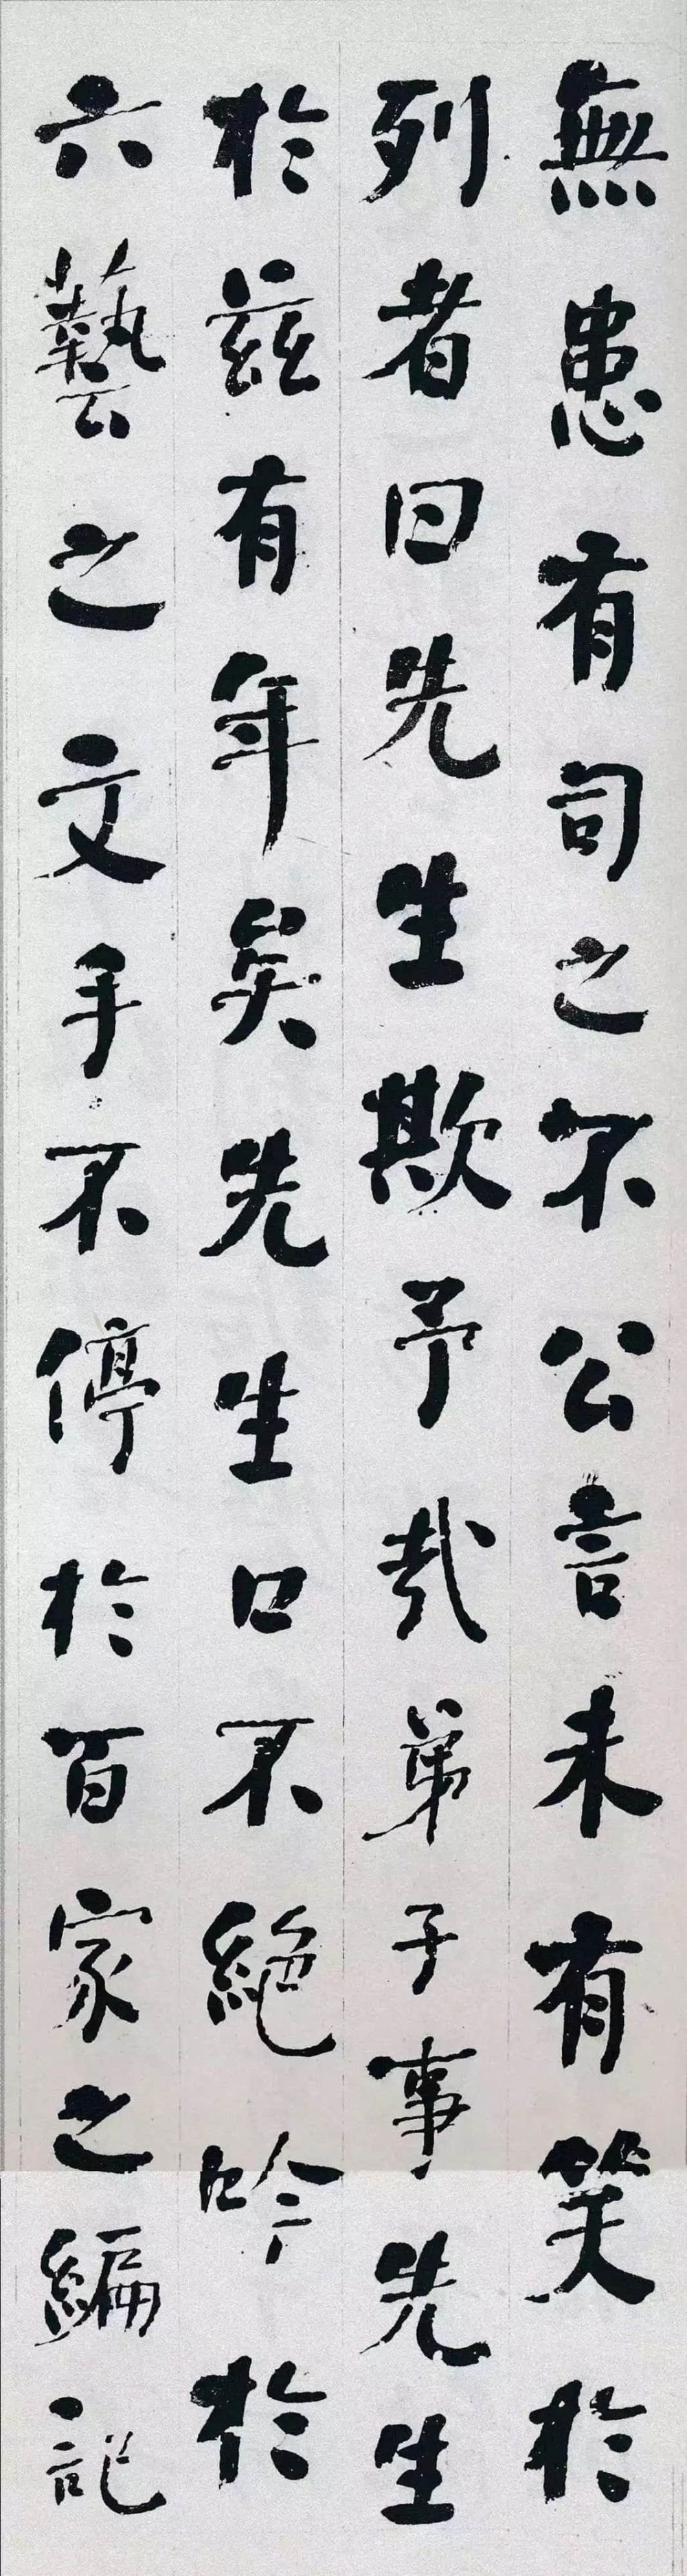 無患有司之不公言未有笑於
列者曰先生欺予哉弟子事先生
於兹有年矣先生口不絕吟於
六藝之文手不停於百家之編記